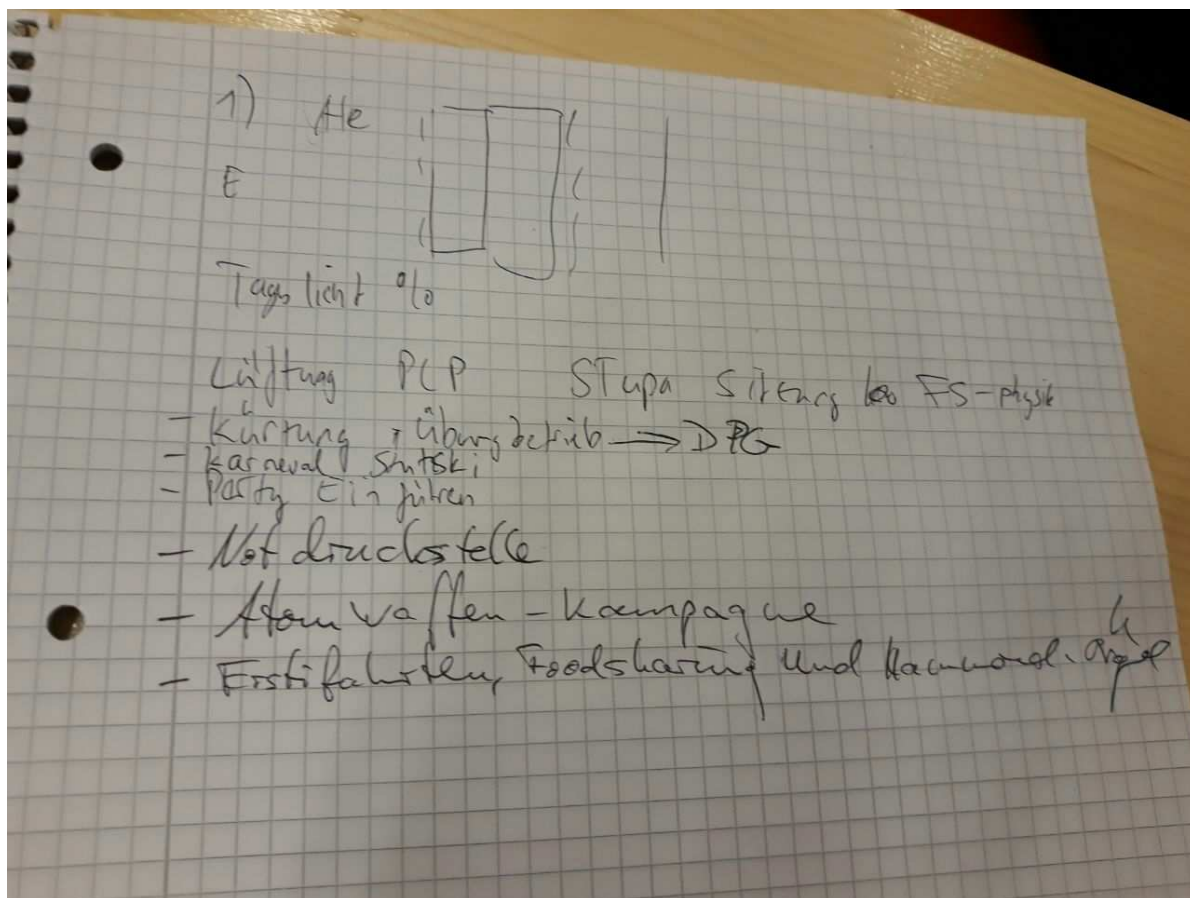 1) He
E
Tageslicht %
Lüftung PCP STupa Sitzung FS-physik
- Kürzung, Übungsbetrieb → DPG
- Karneval
- Party Einführen
- Notdruckstelle
- Atomwaffen-Kampagne
- Erstifahrten, Foodsharing und Hammond-Orgel